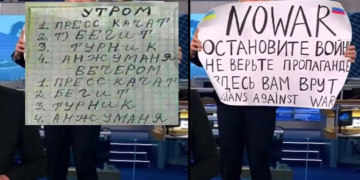 УТРОМ
1. ПРЕСС КАЧАТ
2. Т) БЕГИТ
3. ТУРНИК
4. АНЖУМАНЯ
ВЕЧЕРОМ
1. ПРЕСС КАЧАТ
2. БЕГИТ
3. ТУРНИК
4. АНЖУМАНЯ
NO WAR
ОСТАНОВИТЕ ВОЙН
НЕ ВЕРЬТЕ ПРОПАГАНДЕ
ЗДЕСЬ ВАМ ВРУТ
SIANS AGAINST WAR